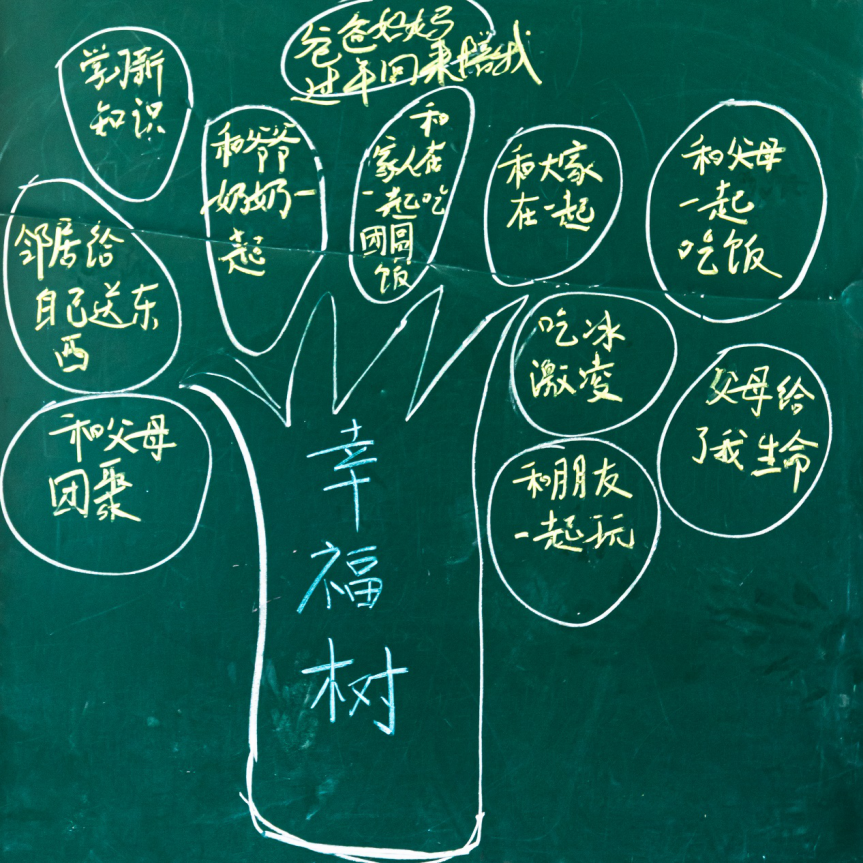 爸爸妈妈
过年回来陪我
学习新
知识
和爷爷
奶奶一
起
和
家人在
一起吃
团圆
饭
和大家
在一起
和父母
一起
吃饭
邻居给
自己送东
西
吃冰
激凌
父母给
了我生命
和父母
团聚
和朋友
一起玩
幸
福
树